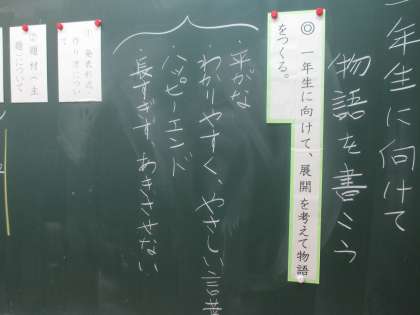 一年生に向けて
物語を書こう
◎ 一年生に向けて、展開を考えて物語
をつくる。
・平がな
・わかりやすく、やさしい言葉
・ハッピーエンド
・長すぎず、あきさせない
① 発表形式
作り方につい
て
② 題材(主
題)について